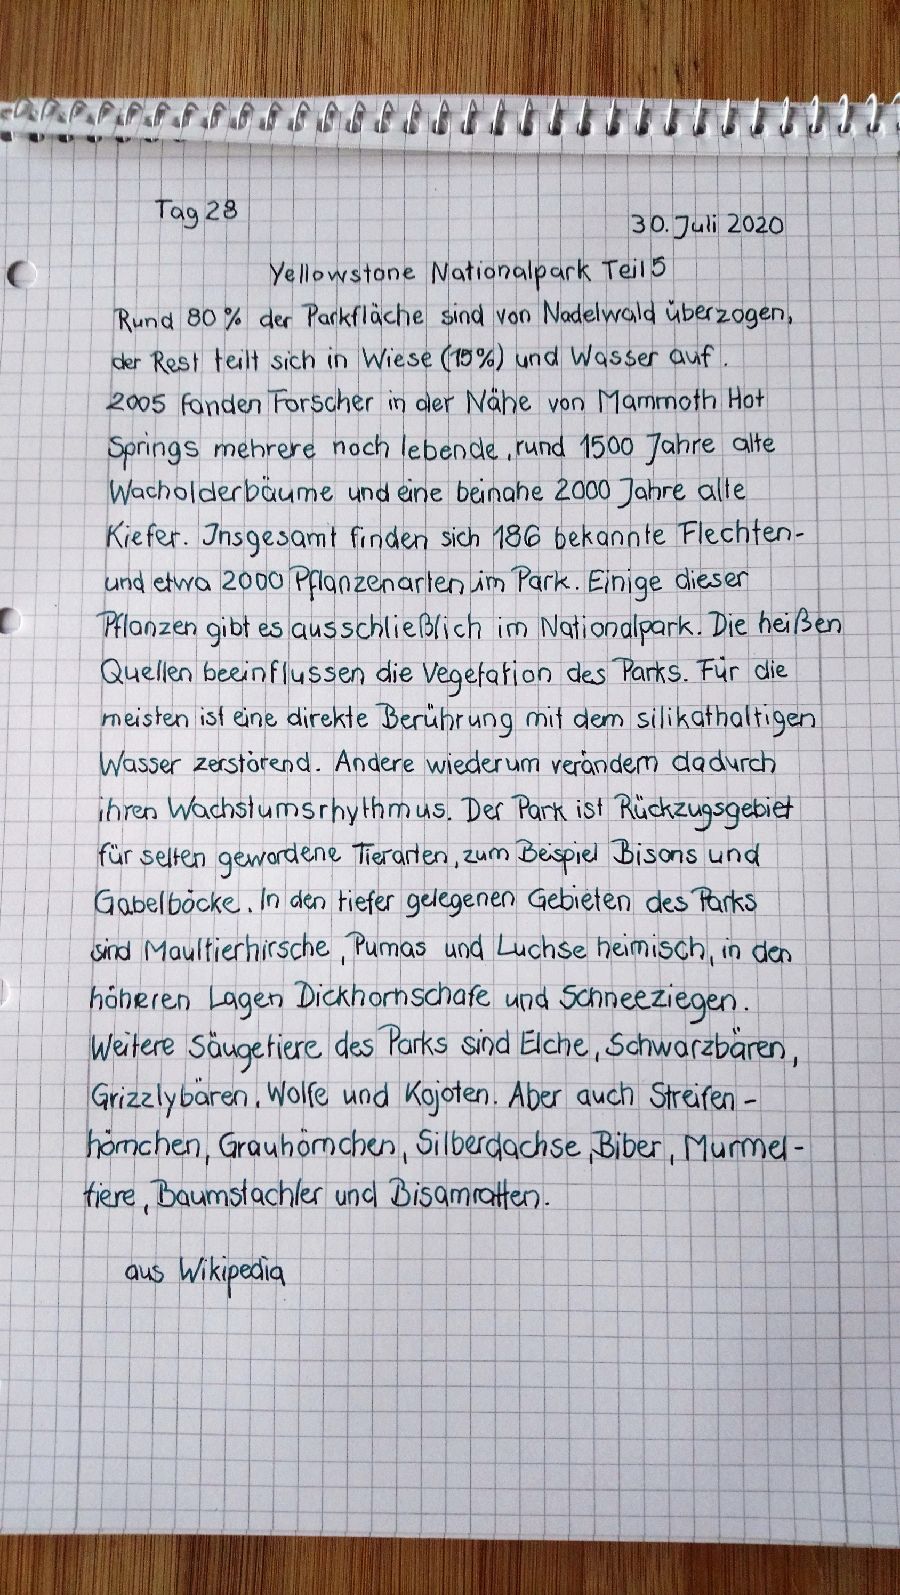 Tag 28
30. Juli 2020
Yellowstone Nationalpark Teil 5
Rund 80% der Parkfläche sind von Nadelwald überzogen,
der Rest teilt sich in Wiese (15%) und Wasser auf.
2005 fanden Forscher in der Nähe von Mammoth Hot
Springs mehrere noch lebende, rund 1500 Jahre alte
Wacholderbäume und eine beinahe 2000 Jahre alte
Kiefer. Insgesamt finden sich 186 bekannte Flechten-
und etwa 2000 Pflanzenarten im Park. Einige dieser
Pflanzen gibt es ausschließlich im Nationalpark. Die heißen
Quellen beeinflussen die Vegetation des Parks. Für die
meisten ist eine direkte Berührung mit dem silikathaltigen
Wasser zerstörend. Andere wiederum verändern dadurch
ihren Wachstumsrhythmus. Der Park ist Rückzugsgebiet
für selten gewordene Tierarten, zum Beispiel Bisons und
Gabelböcke. In den tiefer gelegenen Gebieten des Parks
sind Maultierhirsche, Pumas und Luchse heimisch, in den
höheren Lagen Dickhornschafe und Schneeziegen.
Weitere Säugetiere des Parks sind Elche, Schwarzbären,
Grizzlybären, Wölfe und Kojoten. Aber auch Streifen-
hörnchen, Grauhörnchen, Silberdachse, Biber, Murmel-
tiere, Baumstachler und Bisamratten.
aus Wikipedia